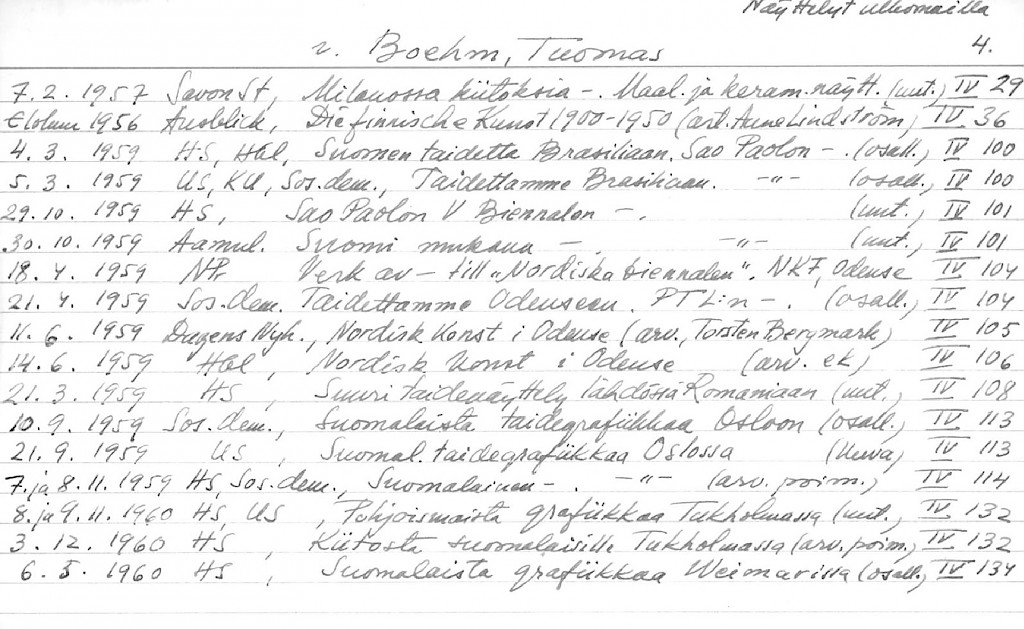 Näyttelyt ulkomailla
v. Boehm, Tuomas 4.
7.2.1957 SavonSt, Milanossa kiitoksia -. Maal. ja keram. näytt. (uut.) IV 29
Elokuu 1956 Ausblick, Die finnische Kunst 1900-1950 (art. Aune Lindström) IV 36
4.3. 1959 HS, Hbl, Suomen taidetta Brasiliaan. Sao Paolon -. (osall.) IV 100
5.3. 1959 US, KU, Sos.dem., Taidettamme Brasiliaan. -"- (osall.) IV 100
29.10. 1959 HS, Sao Paolon V Biennalen -. (uut.) IV 101
30.10.1959 Aamul. Suomi mukana -. -"- (uut.) IV 101
18.4. 1959 NP. Verk av - till "Nordiska biennalen". NKF, Odense IV 104
21.4. 1959 Sos.dem. Taidettamme Odenseen. PTL:n -. (osall.) IV 104
11.6. 1959 Dagens Nyh., Nordisk konst i Odense (arv. Torsten Bergmark) IV 105
14.6. 1959 Hbl, Nordisk konst i Odense (arv. ek) IV 106
21.3. 1959 HS, Suuri taidenäyttely lähdössä Romaniaan (uut.) IV 108
10.9. 1959 Sos.dem., Suomalaista taidegrafiikkaa Osloon (osall.) IV 113
21.9. 1959 US, Suomal. taidegrafiikkaa Oslossa (kuva) IV 113
7. ja 8.11.1959 HS, Sos.dem., Suomalainen -. -"- (arv. poim.) IV 114
8. ja 9.11.1960 HS, US, Pohjoismaista grafiikkaa Tukholmassa (uut.) IV 132
3.12.1960 HS, Kiitosta suomalaisille Tukholmassa (arv. poim.) IV 132
6.5. 1960 HS, Suomalaista grafiikkaa Weimarissa (osall.) IV 134